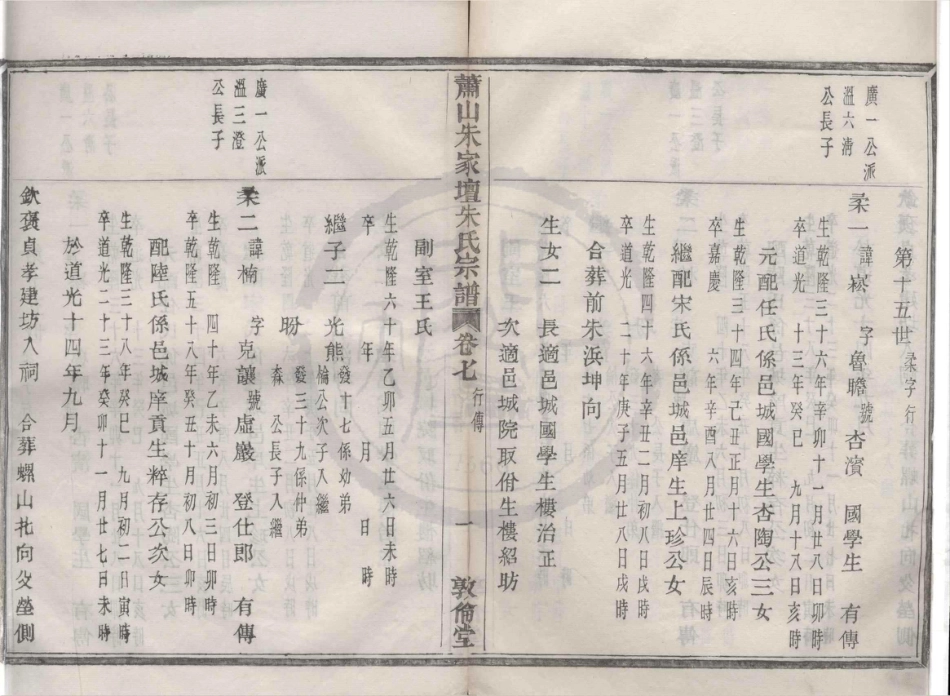 第十五世 柔字行
廣一公派
溫六淸
公長子
柔一 諱崧 字魯瞻 號杏濱 國學生 有傳
生乾隆三十六年辛卯十一月廿八日卯時
卒道光十三年癸巳 九月十八日亥時
元配任氏係邑城國學生杏陶公三女
生乾隆三十四年己丑正月十六日亥時
卒嘉慶 六年辛酉八月廿四日辰時
繼配宋氏係邑城邑庠生上珍公女
生乾隆四十六年辛丑二月初八日戌時
卒道光 二十年庚子五月廿八日戌時
合葬前朱浜坤向
生女二 長適邑城國學生樓治正
次適邑城院取佾生樓紹昉
蕭山朱家壇朱氏宗譜 卷七 行傳 一 敦倫堂
副室王氏
生乾隆六十年乙卯五月廿六日未時
卒 年 月 日 時
繼子二 光熊 發十七係幼弟
倫公次子入繼
昐 發三十九係仲弟
森 公長子入繼
廣一公派
溫三澄
公長子
柔二 諱楠 字克讓 號虛巖 登仕郎 有傳
生乾隆 四十年乙未六月初三日卯時
卒乾隆五十八年癸丑十月初八日卯時
配陸氏係邑城庠貢生粹存公次女
生乾隆三十八年癸巳 九月初二日寅時
卒道光二十三年癸卯十一月廿七日未時
於道光十四年九月
欽褒貞孝建坊入祠 合葬螺山北向父塋側